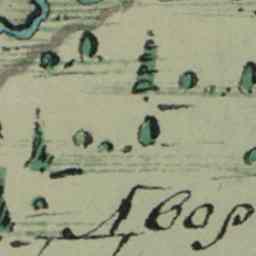 Двор